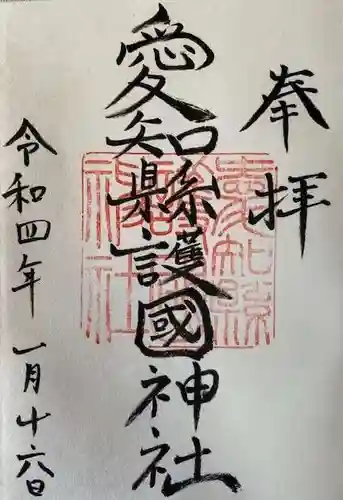 奉拝
愛知縣護國神社
令和四年一月十六日
愛知縣
護國
神社